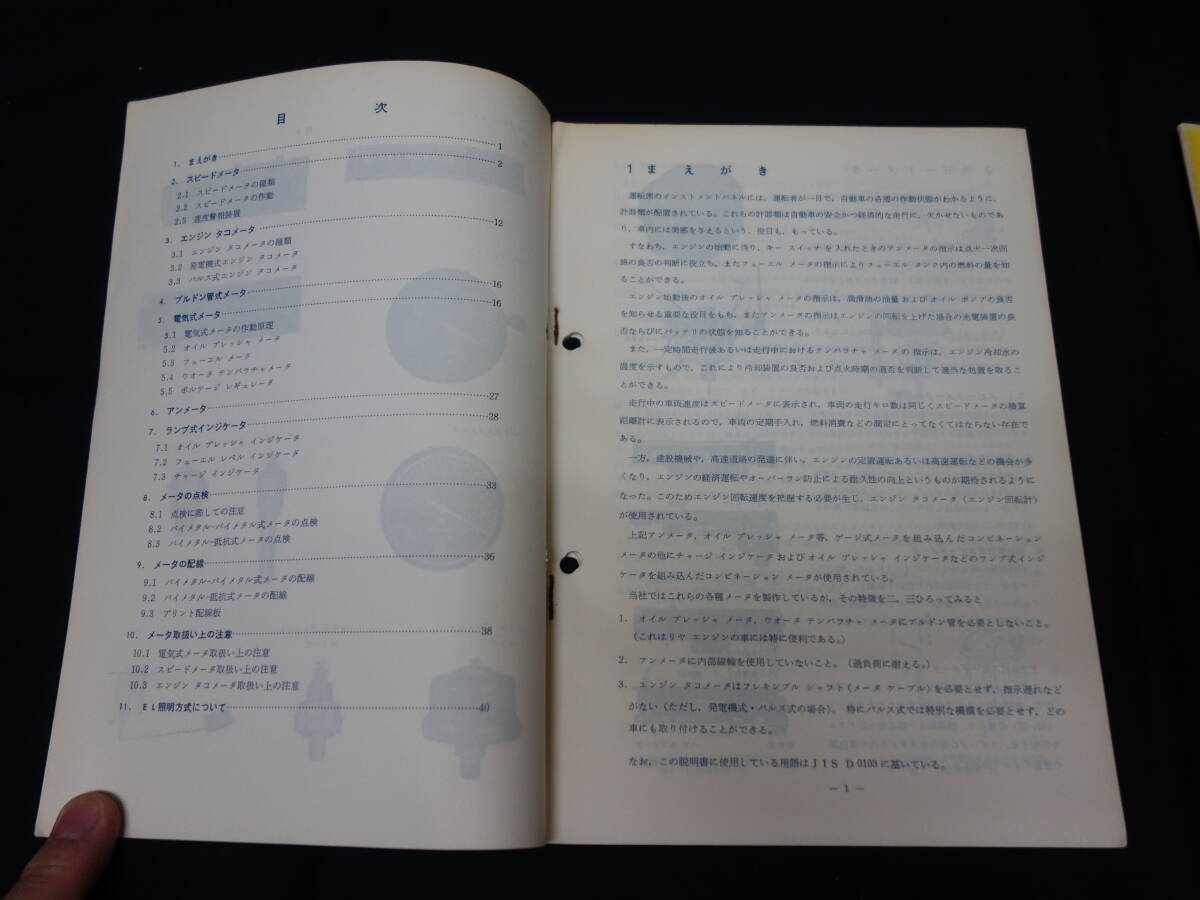 目 次
1. まえがき 1
2. スピードメータ 2
2.1 スピードメータの種類
2.2 スピードメータの作動
2.3 速度警報装置
3. エンジン タコメータ 12
3.1 エンジン タコメータの種類
3.2 発電機式エンジン タコメータ
3.3 パルス式エンジン タコメータ
4. ブルドン管式メータ 16
5. 電気式メータ 16
5.1 電気式メータの作動原理
5.2 オイル プレッシャ メータ
5.3 フューエル メータ
5.4 ウオータ テンパラチャメータ
5.5 ボルテージ レギュレータ
6. アンメータ 27
7. ランプ式インジケータ 28
7.1 オイル プレッシャ インジケータ
7.2 フューエル レベル インジケータ
7.3 チャージ インジケータ
8. メータの点検 33
8.1 点検に際しての注意
8.2 バイメタル-バイメタル式メータの点検
8.3 バイメタル-抵抗式メータの点検
9. メータの配線 36
9.1 バイメタル-バイメタル式メータの配線
9.2 バイメタル-抵抗式メータの配線
9.3 プリント配線板
10. メータ取扱い上の注意 38
10.1 電気式メータ取扱い上の注意
10.2 スピードメータ取扱い上の注意
10.3 エンジン タコメータ取扱い上の注意
11. EL照明方式について 40
1 まえがき
運転席のインストメントパネルには，運転者が一目で，自動車の各部の作動状態がわかるように，
計器類が配置されている。これらの計器類は自動車の安全かつ経済的な走行に，欠かせないものであ
り，車内には美感を与えるという，役目も，もっている。
すなわち，エンジンの始動に当り，キー スイッチを入れたときのアンメータの指示は点火一次回
路の良否の判断に役立ち，またフューエル メータの指示によりフューエル タンク内の燃料の量を知
ることができる。
エンジン始動後のオイル プレッシャ メータの指示は，潤滑油の油量およびオイル ポンプの良否
を知らせる重要な役目をもち，またアンメータの指示はエンジンの回転を上げた場合の充電装置の良
否ならびにバッテリの状態を知ることができる。
また，一定時間走行後あるいは走行中におけるテンパラチャ メータの指示は，エンジン冷却水の
温度を示すもので，これにより冷却装置の良否および点火時期の適否を判断して適当な処置を取るこ
とができる。
走行中の車両速度はスピードメータに表示され，車両の走行キロ数は同じくスピードメータの積算
距離計に表示されるので，車両の定期手入れ，燃料消費などの測定にとってなくてはならない存在で
ある。
一方，建設機械や，高速道路の発達に伴い，エンジンの定置運転あるいは高速運転などの機会が多
くなり，エンジンの経済運転やオーバーラン防止による耐久性の向上というものが期待されるように
なった。このためエンジン回転速度を把握する必要が生じ，エンジン タコメータ（エンジン回転計）
が使用されている。
上記アンメータ，オイル プレッシャ メータ等，ゲージ式メータを組み込んだコンビネーション
メータの他にチャージ インジケータおよびオイル プレッシャ インジケータなどのランプ式インジ
ケータを組み込んだコンビネーション メータが使用されている。
当社ではこれらの各種メータを製作しているが，その特徴を二，三ひろってみると
1. オイル プレッシャ メータ，ウオータ テンパラチャ メータにブルドン管を必要としないこと。
（これはリヤ エンジンの車には特に便利である。）
2. アンメータに内部線輪を使用していないこと。（過負荷に耐える。）
3. エンジン タコメータはフレキシブル シャフト（メータ ケーブル）を必要とせず，指示遅れなど
がない（ただし，発電機式・パルス式の場合）。特にパルス式では特別な機構を必要とせず，どの
車にも取り付けることができる。
なお，この説明書に使用している用語はJIS D0103に基いている。
— 1 —